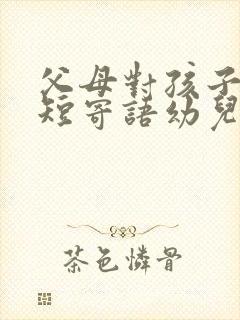 父母對孩子
短寄語幼兒
茶色憐骨